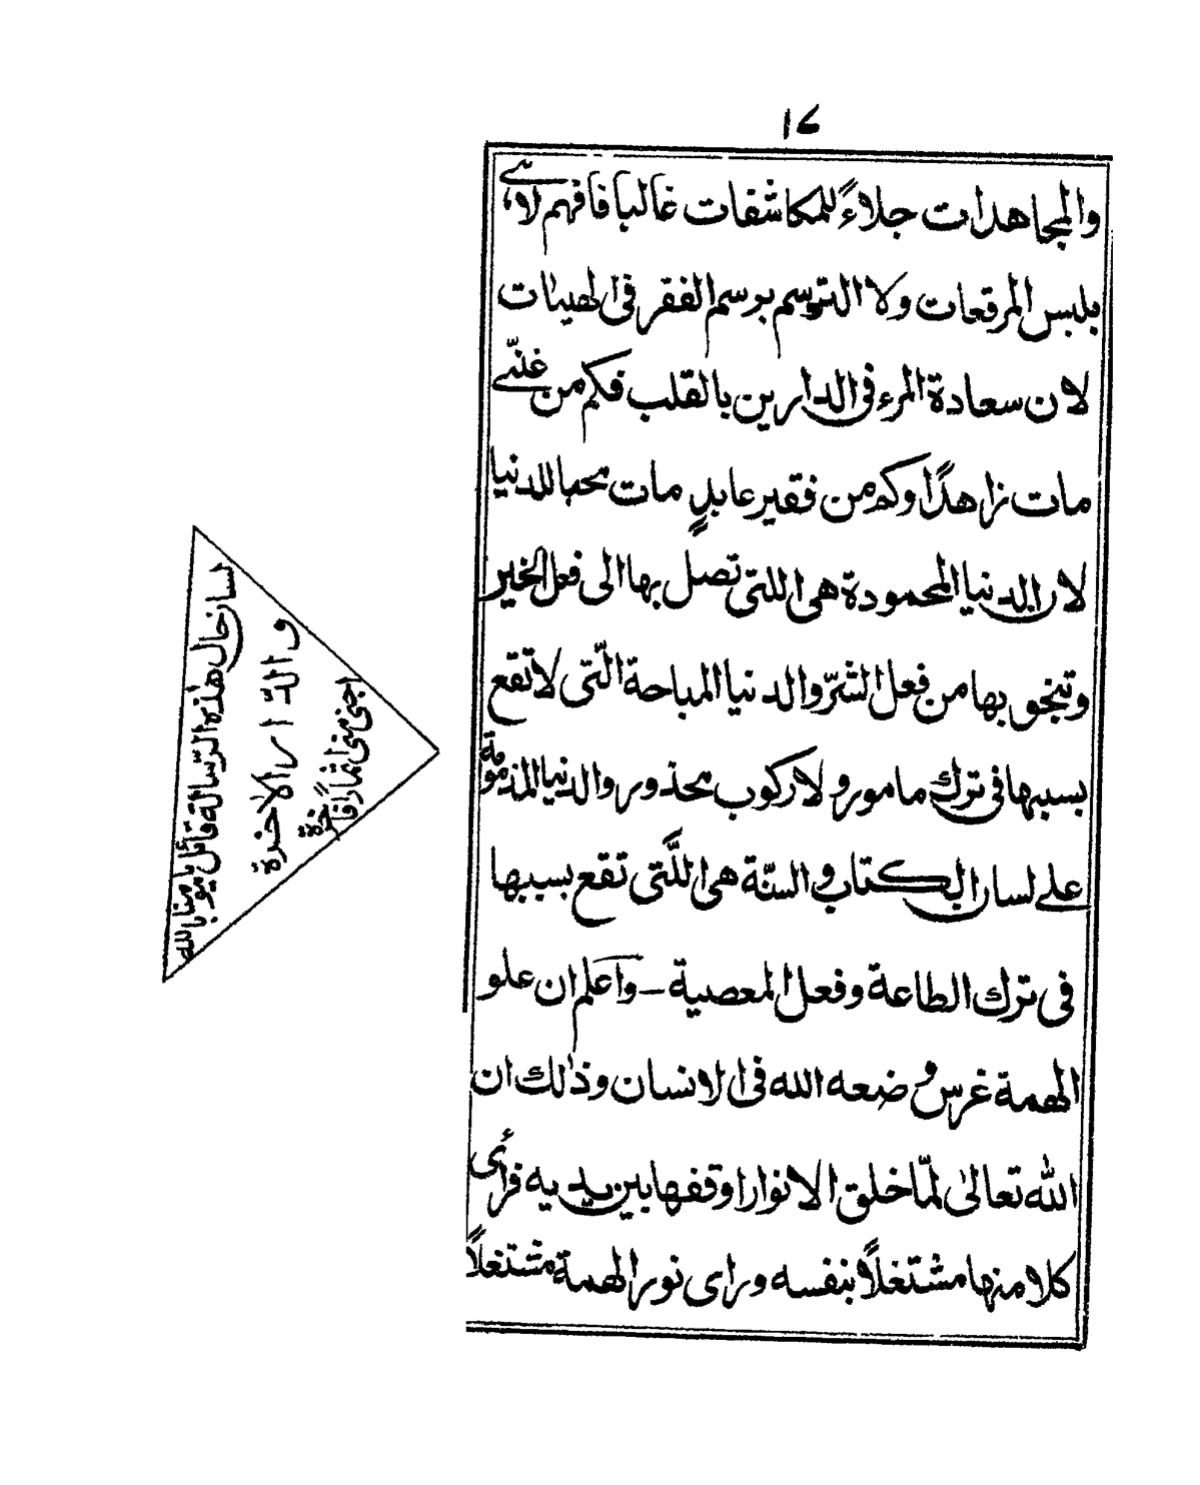 ١٤
والمجاهدات جلاءً للمكاشفات غالبا فافهم لا
بلبس المرقعات ولا التوسم برسم الفقر فى الهيئات
لان سعادة المرء فى الدارين بالقلب فكم من غنىّ
مات زاهدًا وكم من فقير عابدٍ مات محبا للدنيا
لان الدنيا المحمودة هى اللتى تصل بها الى فعل الخير
وتنجو بها من فعل الشرّ والدنيا المباحة الّتى لا تقع
بسببها فى ترك مامور ولا ركوب محذور والدنيا المذمومة
على لسان الكتاب والسنّة هى اللَّتى تقع بسببها
فى ترك الطاعة وفعل المعصية – واعلم ان علو
الهمة غرس وضعه الله فى الانسان وذٰلك ان
الله تعالىٰ لمّا خلق الانوار اوقفها بين يديه فرأى
كلا منها مشتغلًا بنفسه وراى نور الهمة مشتغلًا
لسان حال هذه الرسالة قائل يا مؤمنا بالله
والدّار الاخرة
اجنى منى ثمارًا فاخرة